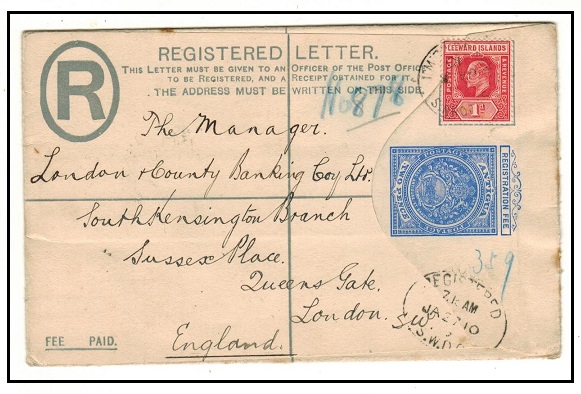 REGISTERED LETTER.
THIS LETTER MUST BE GIVEN TO AN OFFICER OF THE POST OFFICE
TO BE REGISTERED, AND A RECEIPT OBTAINED FOR IT.
THE ADDRESS MUST BE WRITTEN ON THIS SIDE.
R
LEEWARD ISLANDS
POSTAGE
REVENUE
1d
The Manager.
London & County Banking Coy Ltd.
South Kensington Branch
Sussex Place.
Queens Gate.
London.
England.
POSTAGE
ANTIGUA
POSTAGE
REGISTRATION FEE
359
REGISTERED
7.15 AM
JA 27 10
S.W.D.O
FEE PAID.